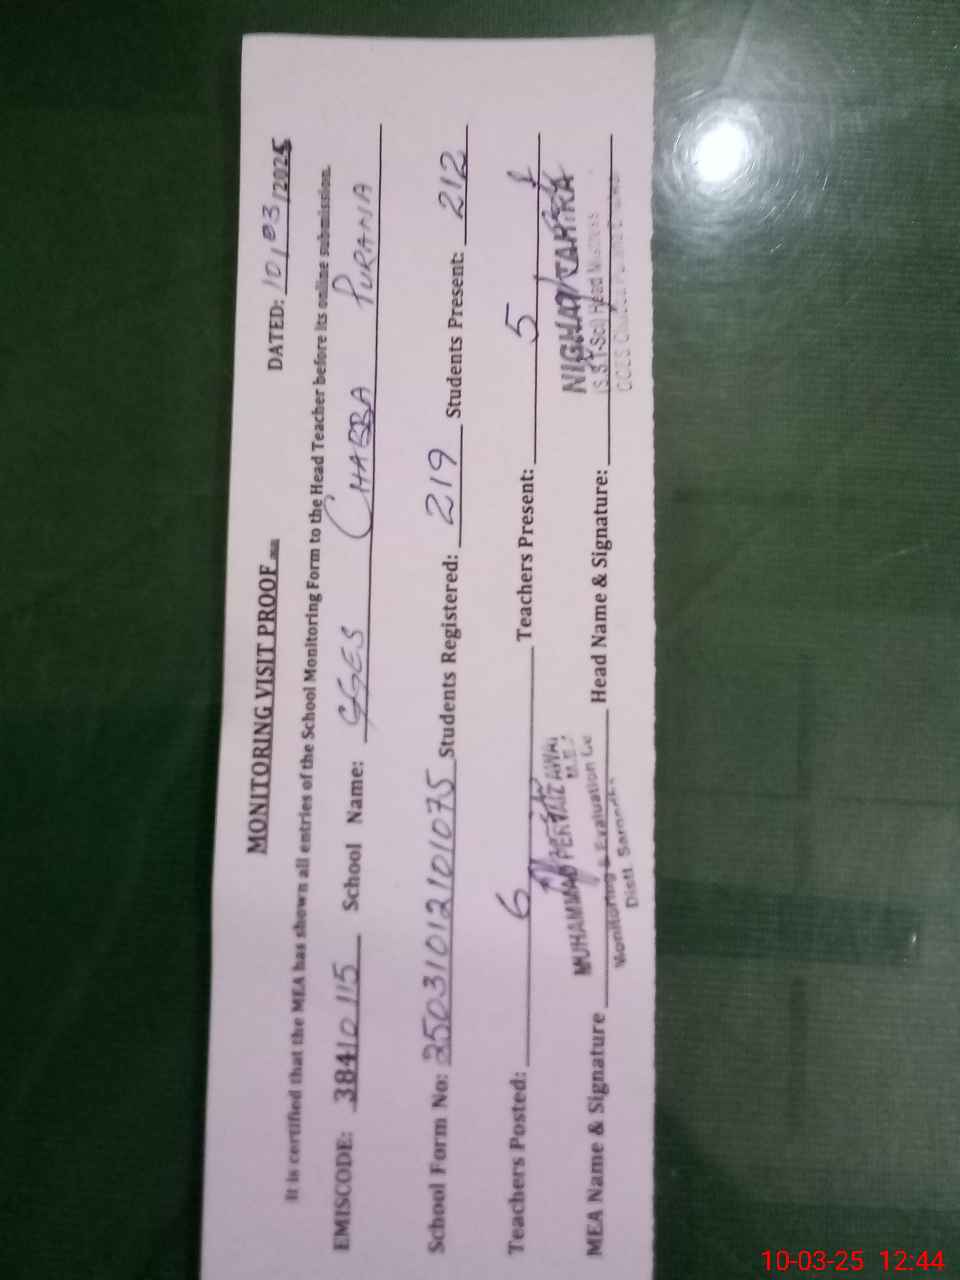 MONITORING VISIT PROOF
DATED: 10/03/2025
It is certified that the MEA has shown all entries of the School Monitoring Form to the Head Teacher before its online submission.
EMISCODE: 38410115 School Name: GGES CHABBA PURANA
School Form No: 25031012101075 Students Registered: 219 Students Present: 212
Teachers Posted: 6 Teachers Present: 5
MEA Name & Signature Head Name & Signature:
MUHAMMAD PERVAIZ AWAN
Monitoring & Evaluation
Distt
NIGHAT TAHIRA
Head Mistress
10-03-25 12:44